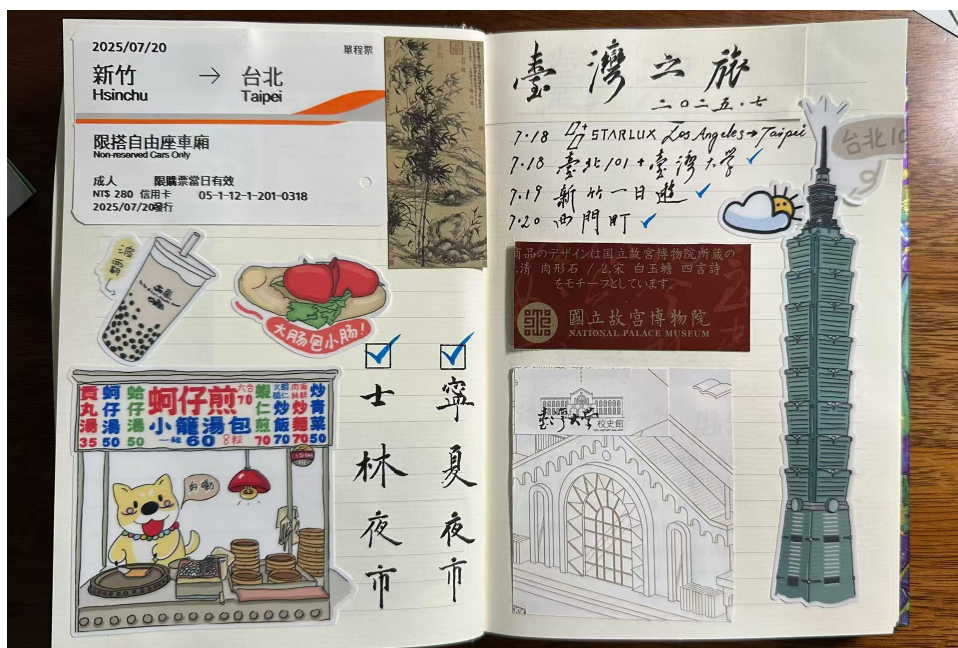 2025/07/20
單程票
新竹 → 台北
Hsinchu Taipei
限搭自由座車廂
Non-reserved Cars Only
成人 限購票當日有效
NT$ 280 信用卡 05-1-12-1-201-0318
2025/07/20發行
大肠包小肠!
貢丸湯 35
蚵仔湯 50
蛤仔湯 50
蚵仔煎 70
小籠湯包
一籠 60 8粒
蝦仁煎 70
炒飯 70
炒麵 70
炒青菜 50
寧夏夜市
士林夜市
臺灣之旅
二〇二五.七
7.18 STARLUX Los Angeles→Taipei
7.18 臺北101+臺灣大學
7.19 新竹一日遊
7.20 西門町
台北10
商品のデザインは国立故宮博物院所蔵の
.清 肉形石 / 2.宋 白玉蟾 四言詩
をモチーフとしています。
國立故宮博物院
NATIONAL PALACE MUSEUM
臺灣大学 校史館